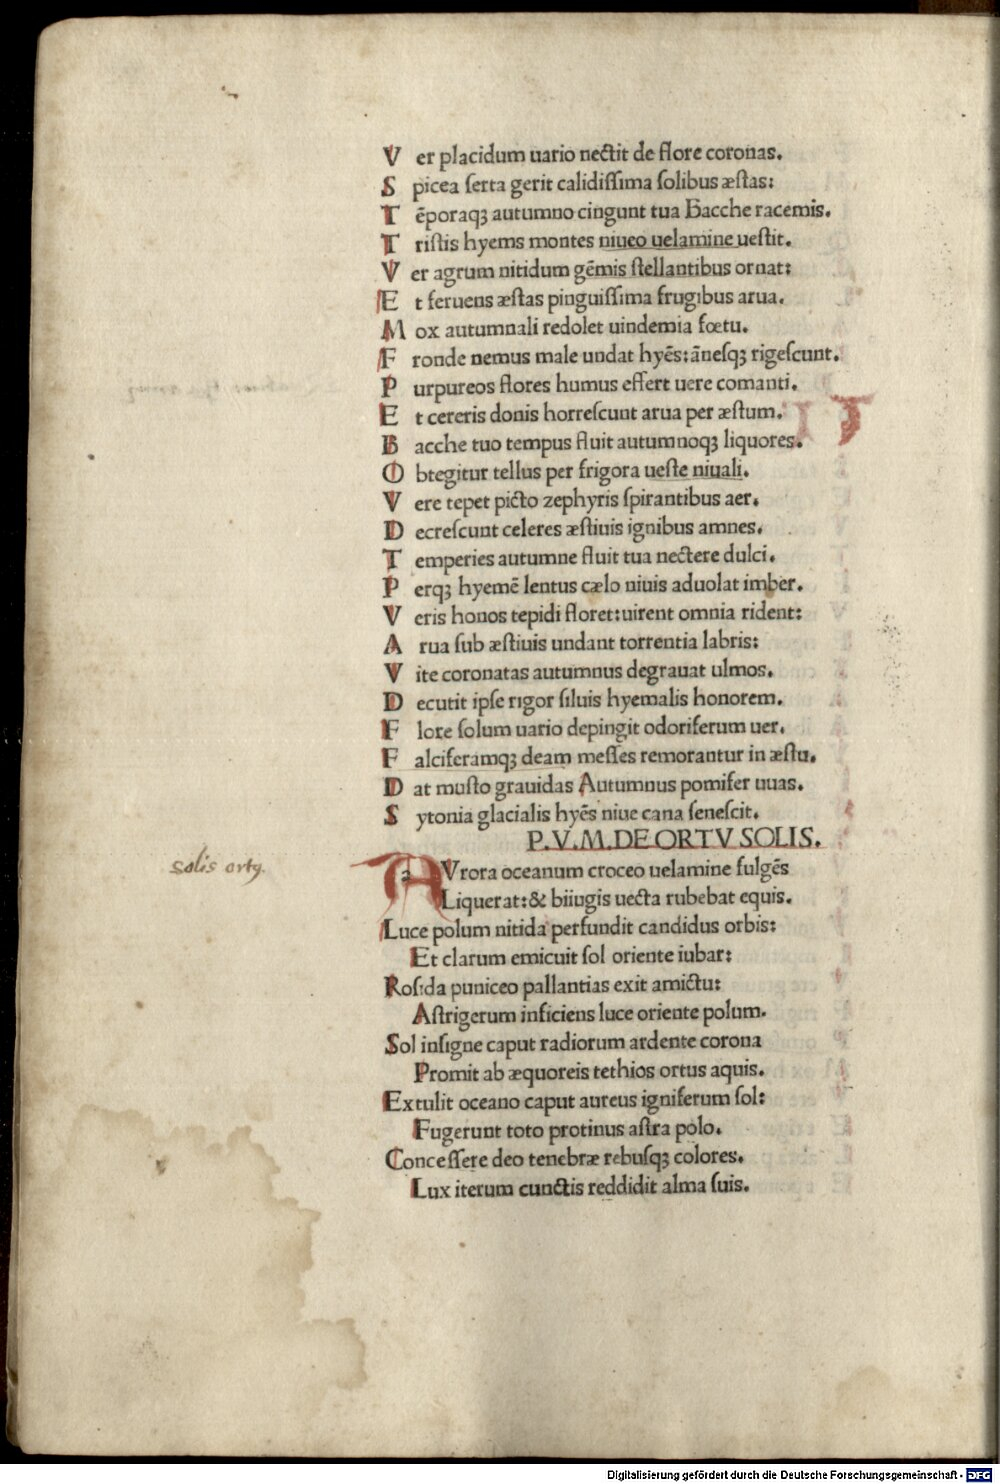 V er placidum uario nectit de flore coronas.
S picea ſerta gerit calidiſſima ſolibus æſtas:
T ēporaqꝫ autumno cingunt tua Bacche racemis.
T riſtis hyems montes niueo uelamine ueſtit.
V er agrum nitidum gēmis ſtellantibus ornat:
E t feruens æſtas pinguiſſima frugibus arua.
M ox autumnali redolet uindemia fœtu.
F ronde nemus male undat hyēs:āneſqꝫ rigeſcunt.
P urpureos flores humus effert uere comanti.
E t cereris donis horreſcunt arua per æſtum.
B acche tuo tempus fluit autumnoqꝫ liquores.
O btegitur tellus per frigora ueſte niuali.
V ere tepet picto zephyris ſpirantibus aer.
D ecreſcunt celeres æſtiuis ignibus amnes.
T emperies autumne fluit tua nectere dulci.
P erqꝫ hyemē lentus cælo niuis aduolat imber.
V eris honos tepidi floret:uirent omnia rident:
A rua ſub æſtiuis undant torrentia labris:
V ite coronatas autumnus degrauat ulmos.
D ecutit ipſe rigor ſiluis hyemalis honorem.
F lore ſolum uario depingit odoriferum uer.
F alciferamqꝫ deam meſſes remorantur in æſtu.
D at muſto grauidas Autumnus pomifer uuas.
S ytonia glacialis hyēs niue cana ſeneſcit.
P.V.M.DE ORTV SOLIS.
solis ortꝯ.
AVrora oceanum croceo uelamine fulgēs
Liquerat:& biiugis uecta rubebat equis.
Luce polum nitida perfundit candidus orbis:
Et clarum emicuit ſol oriente iubar:
Roſida puniceo pallantias exit amictu:
Aſtrigerum inficiens luce oriente polum.
Sol inſigne caput radiorum ardente corona
Promit ab æquoreis tethios ortus aquis.
Extulit oceano caput aureus igniferum ſol:
Fugerunt toto protinus aſtra polo.
Conceſſere deo tenebræ rebuſqꝫ colores.
Lux iterum cunctis reddidit alma ſuis.
Digitalisierung gefördert durch die Deutsche Forschungsgemeinschaft - DFG